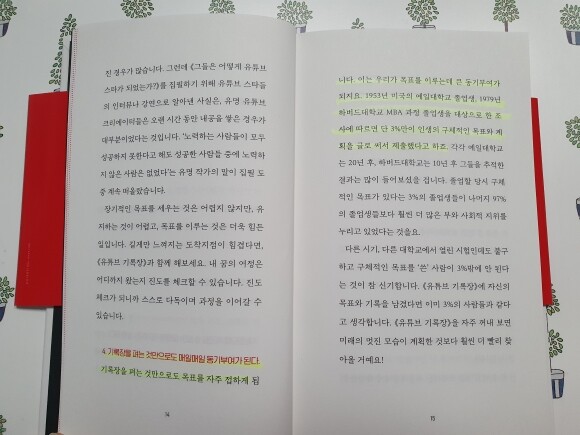 진 경우가 많습니다. 그런데 《그들은 어떻게 유튜브
스타가 되었는가?》를 집필하기 위해 유튜브 스타들
의 인터뷰나 강연으로 알아낸 사실은, 유명 유튜브
크리에이터들은 오랜 시간 동안 내공을 쌓은 경우가
대부분이었다는 것입니다. '노력하는 사람들이 모두
성공하지 못한다고 해도 성공한 사람들 중에 노력하
지 않은 사람은 없었다'는 유명 작가의 말이 집필 도
중 계속 떠올랐습니다.
장기적인 목표를 세우는 것은 어렵지 않지만, 유
지하는 것이 어렵고, 목표를 이루는 것은 더욱 힘든
일입니다. 길게만 느껴지는 도착지점이 힘겹다면,
《유튜브 기록장》과 함께 해보세요. 내 꿈의 여정은
어디까지 왔는지 진도를 체크할 수 있습니다. 진도
체크가 되니까 스스로 다독이며 과정을 이어갈 수
있습니다.
4. 기록장을 펴는 것만으로도 매일매일 동기부여가 된다.
기록장을 펴는 것만으로도 목표를 자주 접하게 됩
14
니다. 이는 우리가 목표를 이루는데 큰 동기부여가
되지요. 1953년 미국의 예일대학교 졸업생, 1979년
하버드대학교 MBA 과정 졸업생을 대상으로 한 조
사에 따르면 단 3%만이 인생의 구체적인 목표와 계
획을 글로 써서 제출했다고 하죠. 각각 예일대학교
는 20년 후, 하버드대학교는 10년 후 그들을 추적한
결과는 많이 들어보셨을 겁니다. 졸업할 당시 구체
적인 목표가 있다는 3%의 졸업생들이 나머지 97%
의 졸업생들보다 훨씬 더 많은 부와 사회적 지위를
누리고 있었다는 것을요.
다른 시기, 다른 대학교에서 열린 시험인데도 불구
하고 구체적인 목표를 '쓴' 사람이 3%밖에 안 된다
는 것이 참 신기합니다. 《유튜브 기록장》에 자신의
목표와 기록을 남겼다면 이미 3%의 사람들과 같다
고 생각합니다. 《유튜브 기록장》을 자주 꺼내 보면
미래의 멋진 모습이 계획한 것보다 훨씬 더 빨리 찾
아올 거예요!
15